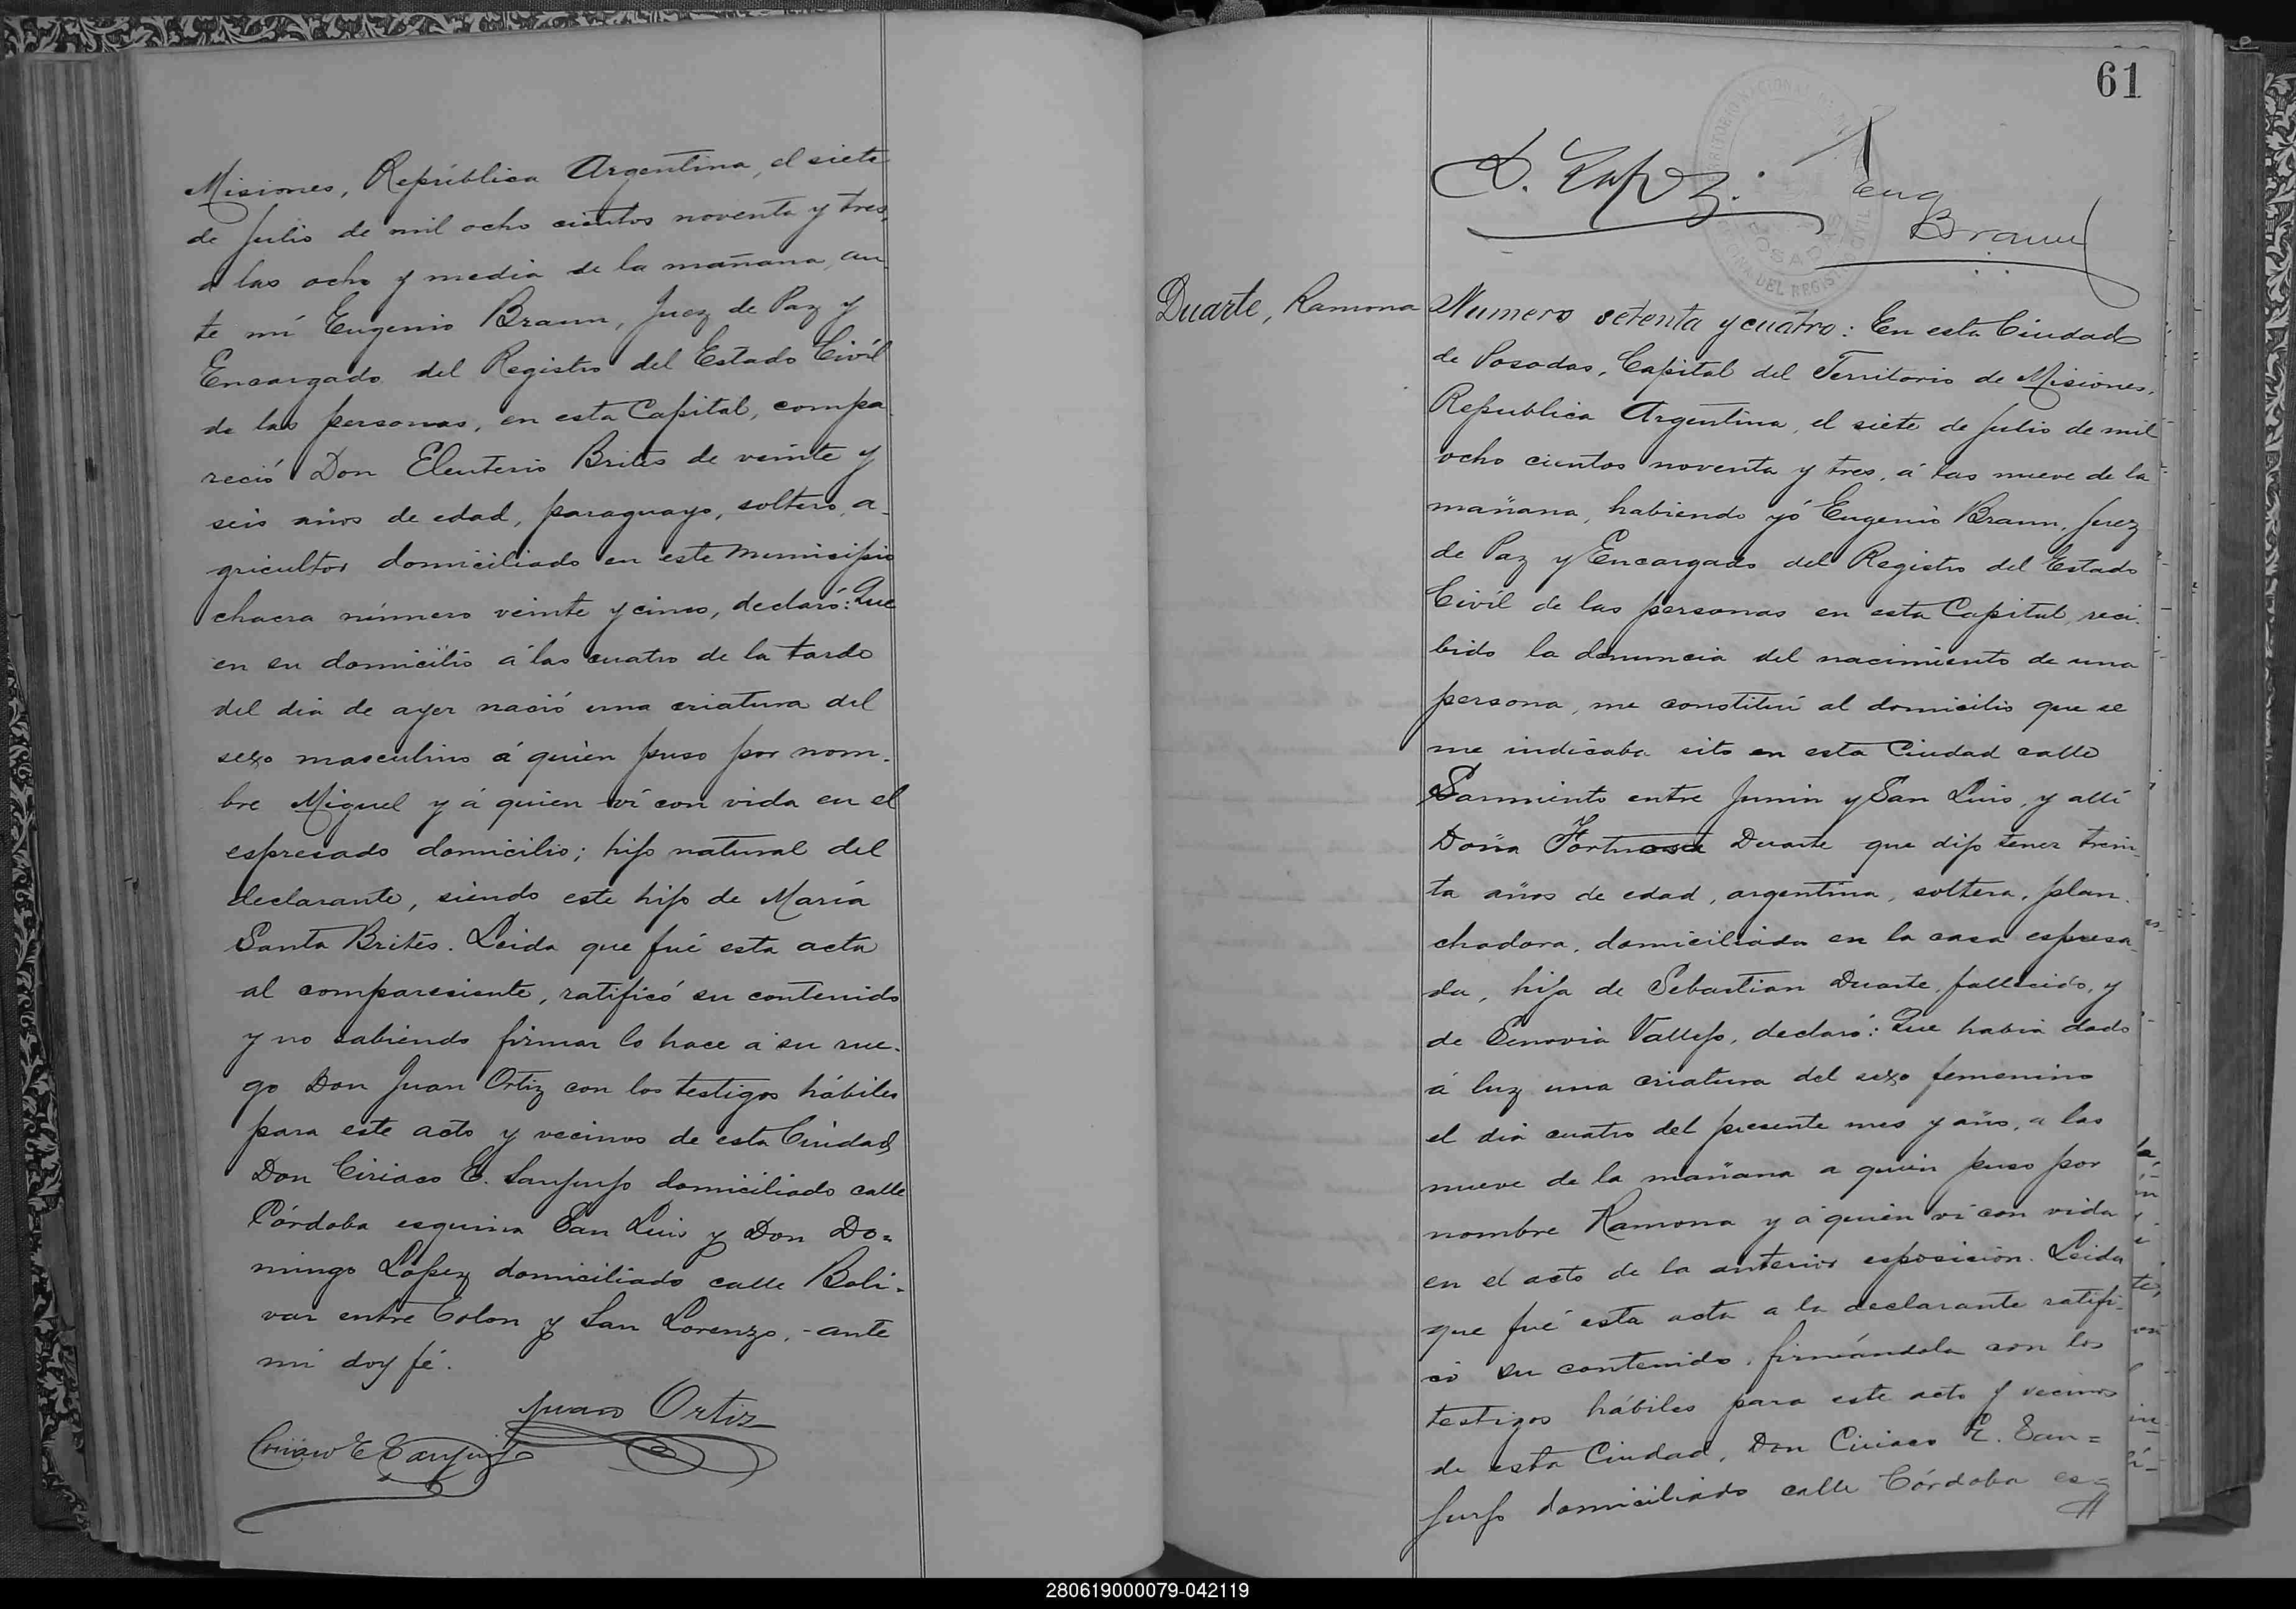 Misiones, República Argentina, el siete
de Julio de mil ocho cientos noventa y tres,
á las ocho y media de la mañana, an-
te mí Eugenio Braun, Juez de Paz y
Encargado del Registro del Estado Civil
de las personas, en esta Capital, compa-
reció Don Eleuterio Brites de veinte y
seis años de edad, paraguayo, soltero, a-
gricultor domiciliado en este Municipio
chacra número veinte y cinco, declaró: Que
en su domicilio á las cuatro de la tarde
del dia de ayer nació una criatura del
sexo masculino á quien puso por nom-
bre Miguel y á quien ví con vida en el
espresado domicilio; hijo natural del
declarante, siendo este hijo de María
Santa Brites. Leida que fué esta acta
al compareciente, ratificó su contenido
y no sabiendo firmar lo hace á su rue-
go Don Juan Ortiz con los testigos hábiles
para este acto y vecinos de esta Ciudad
Don Ciriaco E. Sanjurjo domiciliado calle
Córdoba esquina San Luis y Don Do=
mingo Lopez domiciliado calle Boli-
var entre Colon y San Lorenzo, - ante
mí doy fé.
Juan Ortiz
Ciriaco E Sanjurjo
61
D. Lopez.
Eug
Braun
POSADAS
DEL REGISTRO CIVIL
Duarte, Ramona
Numero setenta y cuatro: En esta Ciudad
de Posadas, Capital del Territorio de Misiones,
Republica Argentina, el siete de Julio de mil
ocho cientos noventa y tres, á las nueve de la
mañana, habiendo yó Eugenio Braun, Juez
de Paz y Encargado del Registro del Estado
Civíl de las personas en esta Capital, reci-
bido la denuncia del nacimiento de una
persona, me constituí al domicilio que se
me indicaba sito en esta Ciudad calle
Sarmiento entre Junin y San Luis, y allí
Doña Duarte que dijo tener trein-
ta años de edad, argentina, soltera, plan-
chadora, domiciliada en la casa espresa-
da, hija de Sebastian Duarte, fallecido, y
de Cenovia Vallejo, declaró: Que habia dado
á luz una criatura del sexo femenino
el dia cuatro del presente mes y año, a las
nueve de la mañana a quien puso por
nombre Ramona y á quien ví con vida
en el acto de la anterior esposicion. Leida
que fué esta acta a la declarante ratifi-
có su contenido, firmándola con los
testigos hábiles para este acto y vecinos
de esta Ciudad, Don Ciriaco E. San=
jurjo domiciliado calle Córdoba es=
280619000079-042119